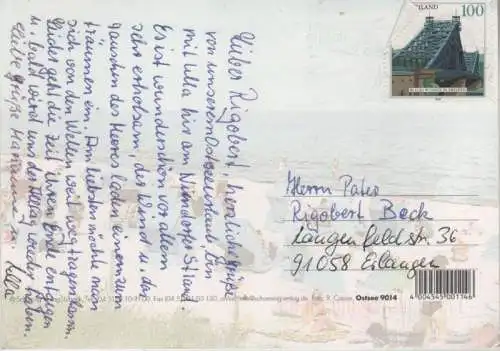 Lieber Rigobert, herzliche Grüße
von unserem Ostseeurlaub, bin
mit Lilla hier am Niendorfer Strand.
Es ist wunderschön vor allem
sehr erholsam, der Wind u. das
Rauschen des Meeres laden einem zum
träumen ein. Am liebsten möchte man
sich von den Wellen weit wegtragen lassen.
Leider geht die Zeit ihrem Ende entgegen
u. bald wird uns der Alltag wieder haben.
Liebe Grüße Mariann u. Lilla
100
Herrn Pater
Rigobert Beck
Langenfeldstr. 36
91058 Erlangen
Ostsee 9014
4 004545 001146